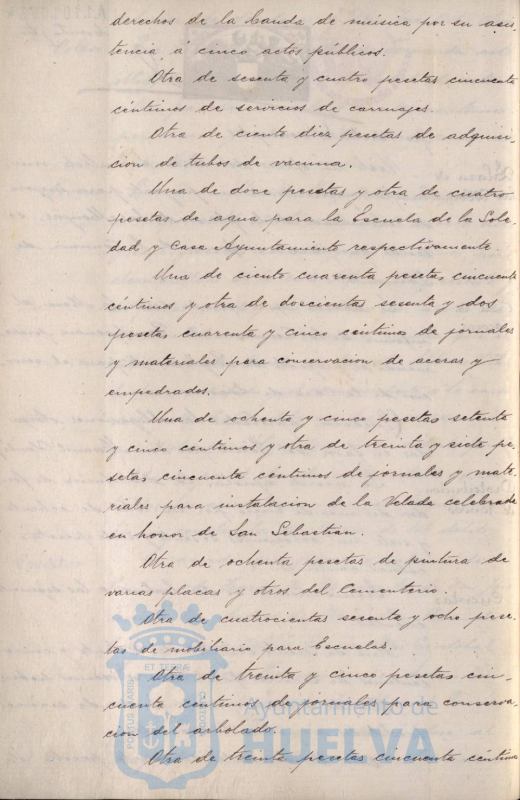 derechos de la banda de música por su asis
tencia á cinco actos públicos.
Otra de sesenta y cuatro pesetas cincuenta
céntimos de servicios de carruajes.
Otra de ciento diez pesetas de adquisi-
cion de tubos de vacuna.
Una de doce pesetas y otra de cuatro
pesetas de agua para la Escuela de la Sole-
dad y Casa Ayuntamiento respectivamente.
Una de ciento cuarenta pesetas, cincuenta
céntimos y otra de doscientas sesenta y dos
pesetas cuarenta y cinco céntimos de jornales
y materiales para conservacion de aceras y
empedrados.
Una de ochenta y cinco pesetas setenta
y cinco céntimos y otra de treinta y siete pe-
setas cincuenta céntimos de jornales y mate-
riales para instalacion de la Velada celebrada
en honor de San Sebastian.
Otra de ochenta pesetas de pintura de
varias placas y otros del Cementerio.
Otra de cuatrocientas sesenta y ocho pese-
tas de mobiliario para Escuelas.
Otra de treinta y cinco pesetas cin-
cuenta céntimos de jornales para conserva-
cion del arbolado.
Otra de treinta pesetas cincuenta céntimos
ET TERRÆ
PORTUS MARIS
CUSTODIA
Ayuntamiento de
HUELVA